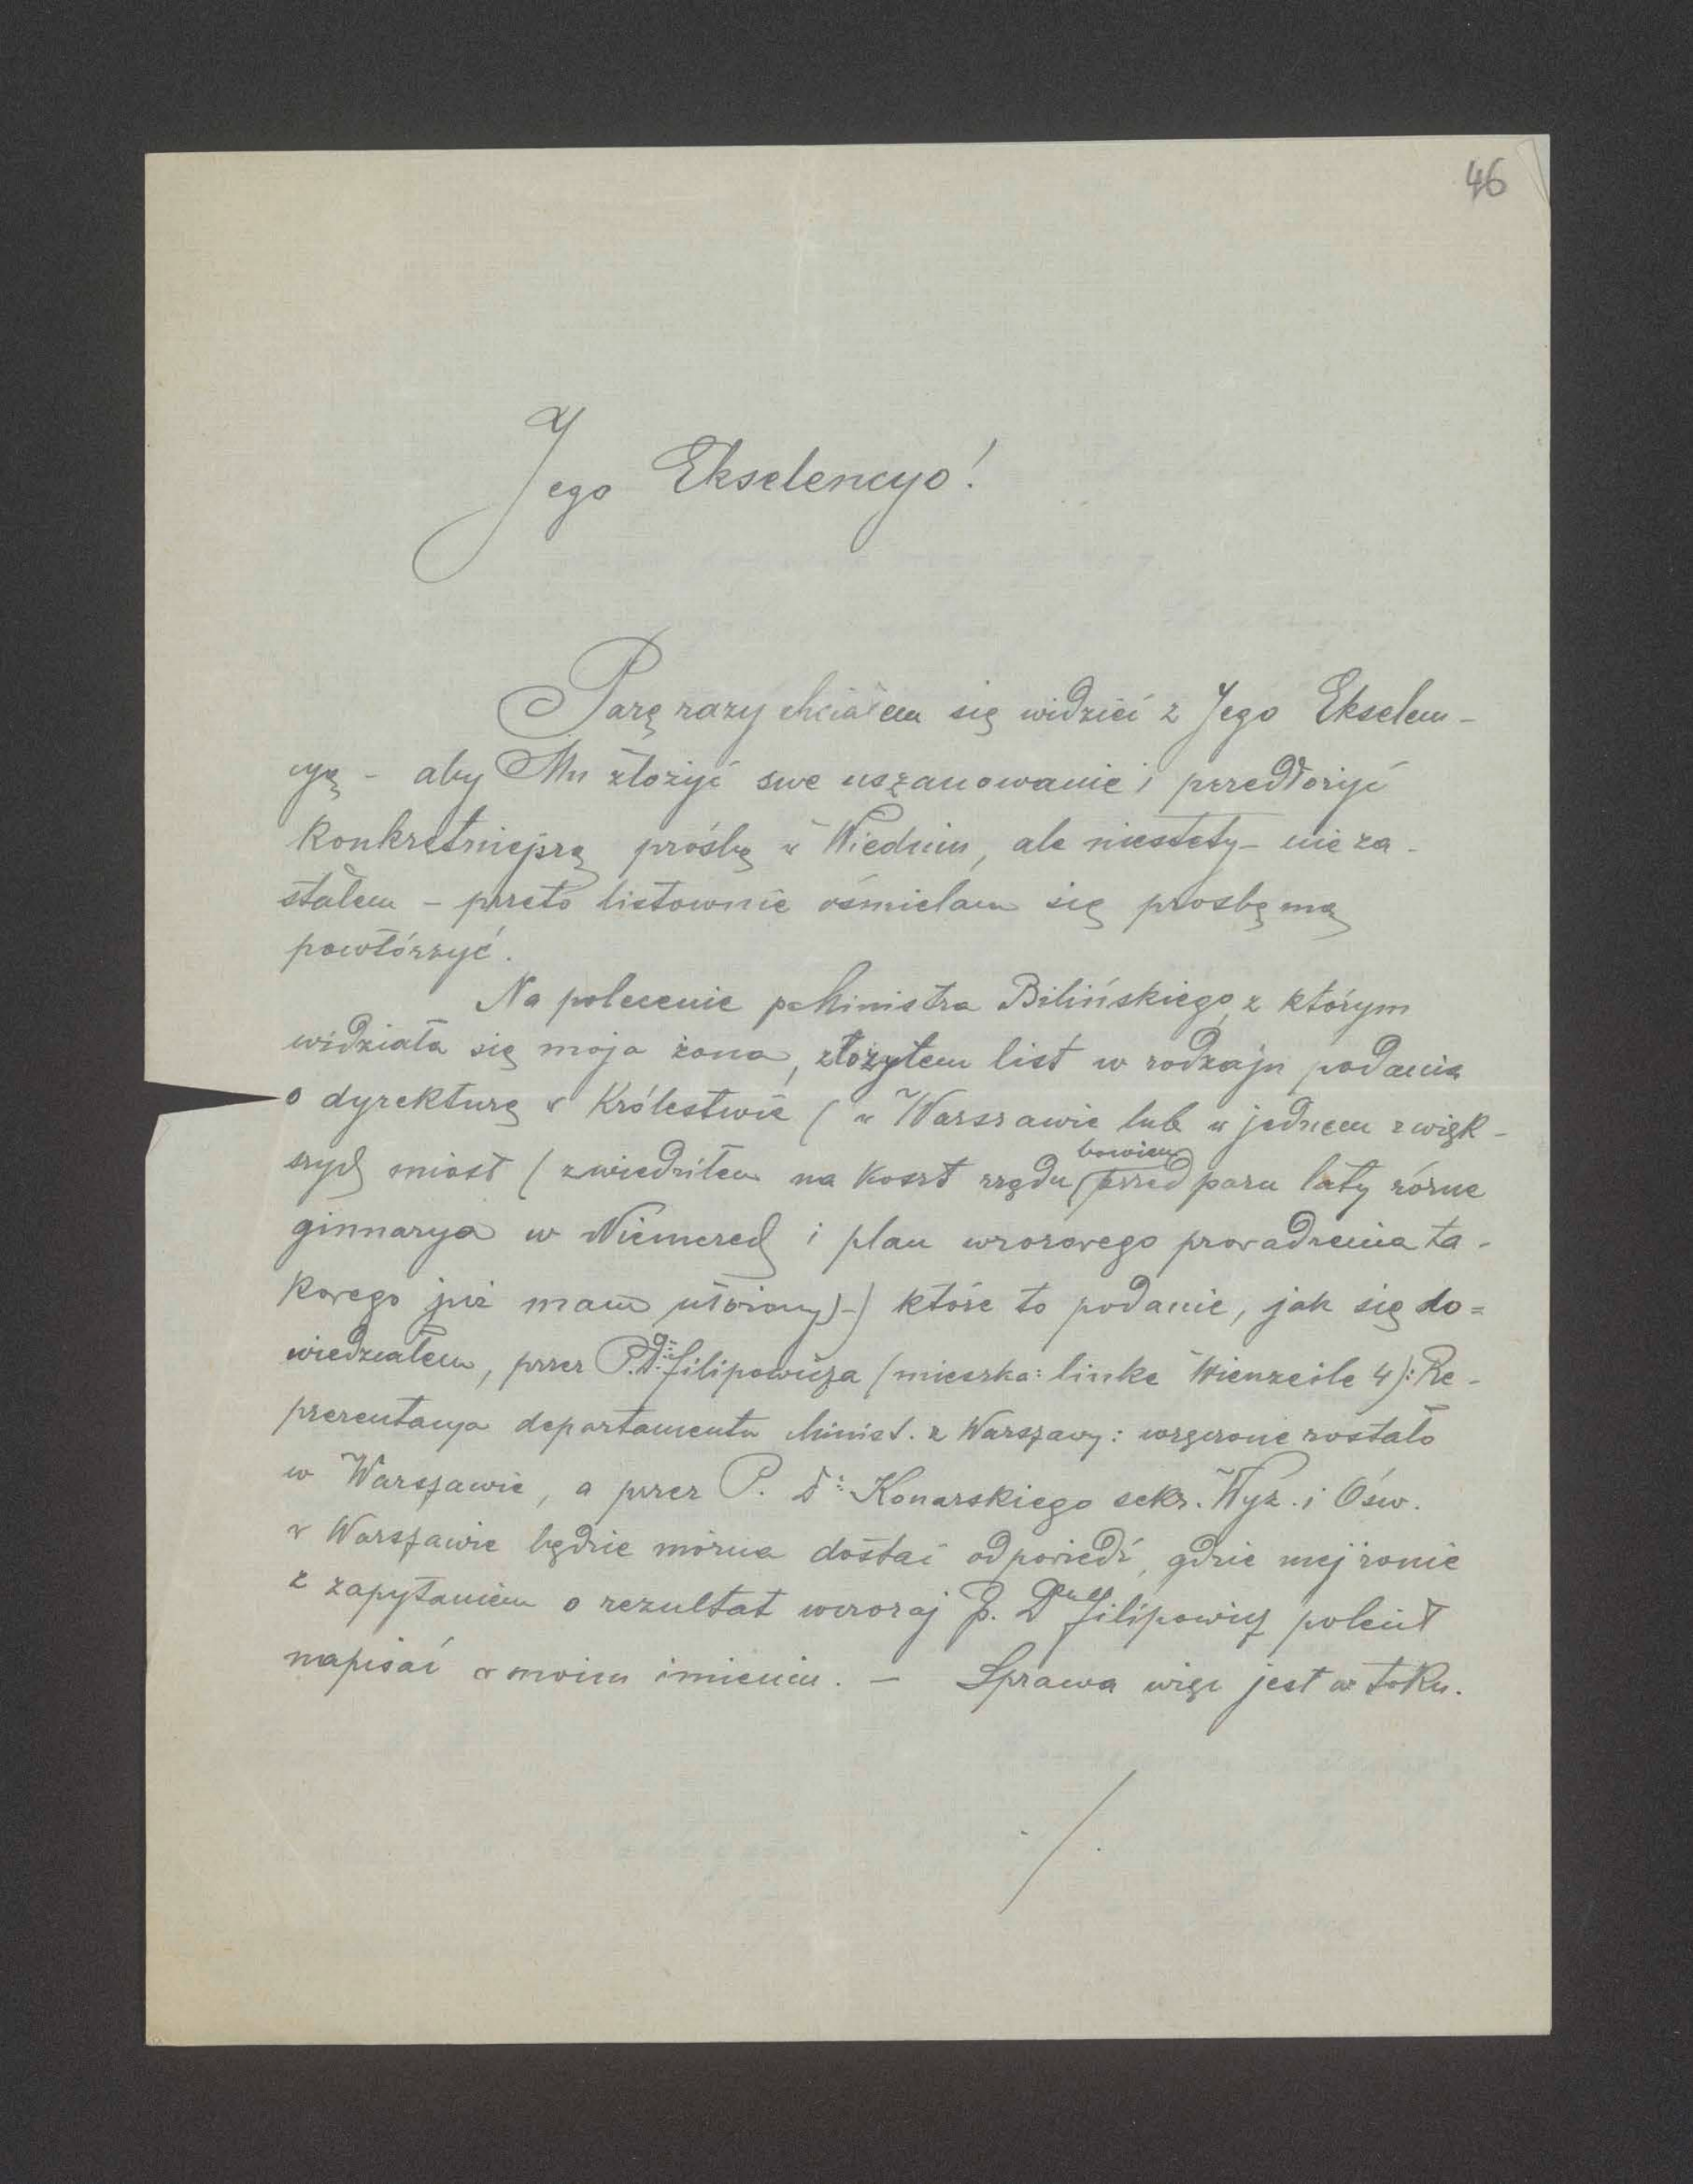 46
Jego Ekscelencyo!
Parę razy chciałem się widzieć z Jego Ekscelen-
cyą - aby Mu złożyć swe uszanowanie i przedłożyć
konkretniejszą prośbę w Wiedniu, ale niestety - nie za-
stałem - przeto listownie ośmielam się prosbę mą
powtórzyć.
Na polecenie p. Ministra Bilińskiego, z którym
widziała się moja żona, złożyłem list w rodzaju podania
o dyrekturę w Królestwie (w Warszawie lub w jednem z więk-
szych miast (zwiedziłem na koszt rządu bowiem przed paru laty różne
gimnazya w Niemczech i plan wzorowego prowadzenia ta-
kowego już mam ułożony)-) które to podanie, jak się do=
wiedziałem, przez P. Dra Filipowicza (mieszka: linke Wienzeile 4): Re-
prezentanja departamentu Minist. z Warszawy: wręczone zostało
w Warszawie, a przez P. Dr: Konarskiego sekr. Wyz. i Ośw.
w Warszawie będzie można dostać odpowiedź, gdzie mej żonie
z zapytaniem o rezultat wczoraj P. Dr Filipowicz polecił
napisać w moim imieniu. - Sprawa więc jest w toku.
./.